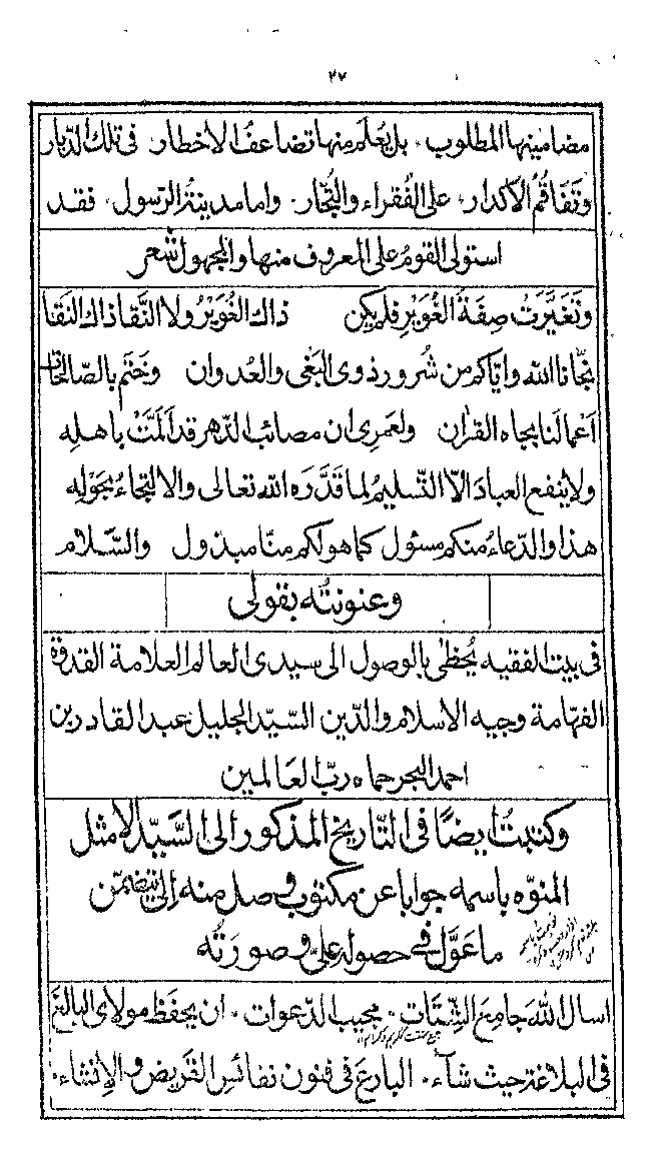 ٢٧
مضامينها المطلوب، بل يُعلَم منها تضاعفُ الاخطار، فى تلك الديار
وتَفَاقُمُ الاكدار، على الفُقراء والتُّجّار، واما مدينة الرسول، فقد
استولى القومُ على المعروف منها والمجهول شعر
وتَغيَّرَتْ صِفَةُ الغُوَيْرِ فلم يكن ذاك الغُوَيْرُ ولا النَّقا ذاك النقا
نجّانا الله واياكم من شُرور ذوى البَغْى والعُدوان وخَتَم بالصّالحات
اَعمالَنا بجاه القرآن ولعَمرِى ان مصائب الدّهر قد اَلَمَّتْ باهله
ولا ينفع العبادَ الّا التّسليمُ لما قَدَّرَه الله تعالى والالتجاءُ بحَوْلِه
هذا والدّعاءُ منكم مسئول كما هو لكم منّا مبذول والسَّلام
وعنونتُه بقولى
فى بيت الفقيه يُحْظٰى بالوصول الى سيدى العالم العلامة القدوة
الفهّامة وجيه الاسلام والدّين السّيّد الجليل عبد القادر بن
احمد البحر حماه ربّ العالمين
وكتبتُ ايضًا فى التّاريخ المذكور الى السَّيّد الامثل
المنوّه باسمه جوابا عن مكتوب وصل منه اِلىّ يتضمّن
ما عَوَّل فى حصوله علىّ وصورَتُه
اسال اللهَ جامعَ الشّتَات، مجيب الدّعوات، ان يحفظ مولاى البالغَ
فى البلاغة حيث شآء، البارعَ فى فنون نفائس القريض والاِنشاء،